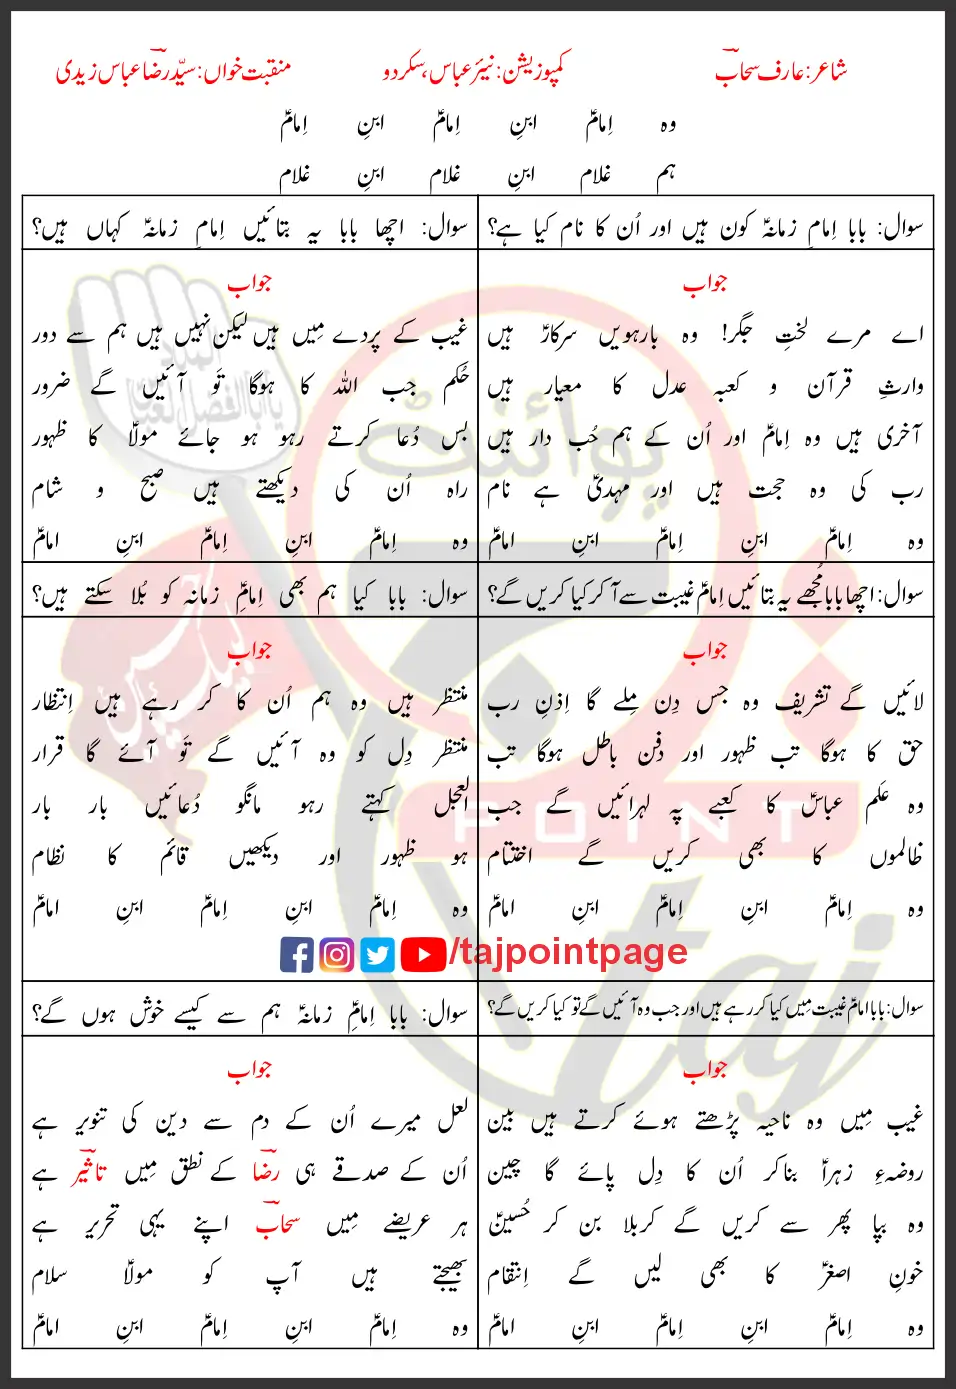 شاعر: عارف سحابؔ
کمپوزیشن: نیئر عباس، سکردو
منقبت خواں: سیّد رضاؔ عباس زیدی
وہ اِمامؑ ابنِ اِمامؑ ابنِ اِمامؑ
ہم غلام ابنِ غلام ابنِ غلام
سوال: بابا اِمامِ زمانہؑ کون ہیں اور اُن کا نام کیا ہے؟
جواب
اے مرے لختِ جگر! وہ بارہویں سرکارؑ ہیں
وارثِ قرآن و کعبہ عدل کا معیار ہیں
آخری ہیں وہ اِمامؑ اور اُن کے ہم حُب دار ہیں
رب کی وہ حجت ہیں اور مہدیؑ ہے نام
وہ اِمامؑ ابنِ اِمامؑ ابنِ امامؑ
سوال: اچھا بابا یہ بتائیں اِمامِ زمانہؑ کہاں ہیں؟
جواب
غیب کے پردے مِیں ہیں لیکن نہیں ہیں ہم سے دور
حُکم جب اللہ کا ہوگا تَو آئیں گے ضرور
بس دُعا کرتے رہو ہو جائے مولاؑ کا ظہور
راہ اُن کی دیکھتے ہیں صبح و شام
وہ اِمامؑ ابنِ اِمامؑ ابنِ امامؑ
سوال: اچھا بابا مُجھے یہ بتائیں اِمامؑ غیبت سے آ کر کیا کریں گے؟
جواب
لائیں گے تشریف وہ جس دِن مِلے گا اِذنِ رب
حق کا ہوگا تب ظہور اور دفن باطل ہوگا تب
وہ عَلم عباسؑ کا کعبے پہ لہرائیں گے جب
ظالموں کا بھی کریں گے اختتام
وہ اِمامؑ ابنِ اِمامؑ ابنِ امامؑ
سوال: بابا کیا ہم بھی اِمامِؑ زمانہ کو بُلا سکتے ہیں؟
جواب
منتظر ہیں وہ ہم اُن کا کر رہے ہیں اِنتظار
منتظر دِل کو وہ آئیں گے تَو آئے گا قرار
العجل کہتے رہو مانگو دُعائیں بار بار
ہو ظہور اور دیکھیں قائم کا نظام
وہ اِمامؑ ابنِ اِمامؑ ابنِ امامؑ
/tajpointpage
سوال: بابا امامؑ غیبت مِیں کیا کر رہے ہیں اور جب وہ آئیں گے تو کیا کریں گے؟
جواب
غیب مِیں وہ ناحیہ پڑھتے ہوئے کرتے ہیں بین
روضۂ زہراؑ بنا کر اُن کا دِل پائے گا چین
وہ بپا پھر سے کریں گے کربلا بن کر حُسینؑ
خونِ اصغرؑ کا بھی لیں گے اِنتقام
وہ اِمامؑ ابنِ اِمامؑ ابنِ امامؑ
سوال: بابا اِمامِؑ زمانہؑ ہم سے کیسے خوش ہوں گے؟
جواب
لعل میرے اُن کے دم سے دین کی تنویر ہے
اُن کے صدقے ہی رضاؔ کے نطق مِیں تاثیرؔ ہے
ہر عریضے مِیں سحابؔ اپنے یہی تحریر ہے
بھیجتے ہیں آپ کو مولاؑ سلام
وہ اِمامؑ ابنِ اِمامؑ ابنِ امامؑ
تاج پوائنٹ
POINT
taj
لبیک یا حسین
یا ابا الفضل العباس